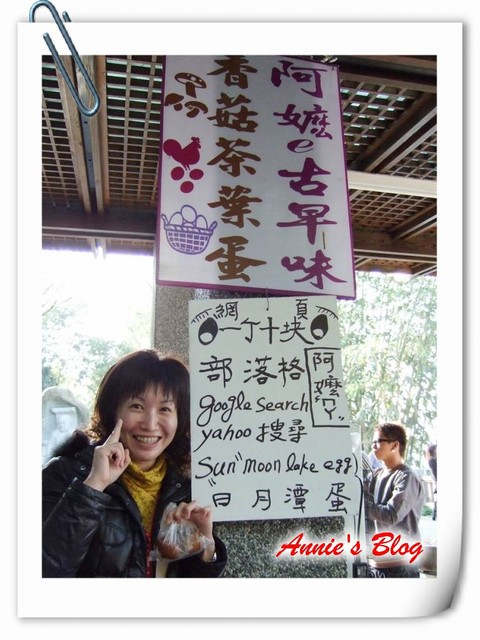 阿嬤e古早味
香菇茶葉蛋
網頁
一個十块
部落格
阿嬤ㄇ
google search
yahoo 搜尋
Sun "moon lake egg
"日月潭 蛋
Annie's Blog